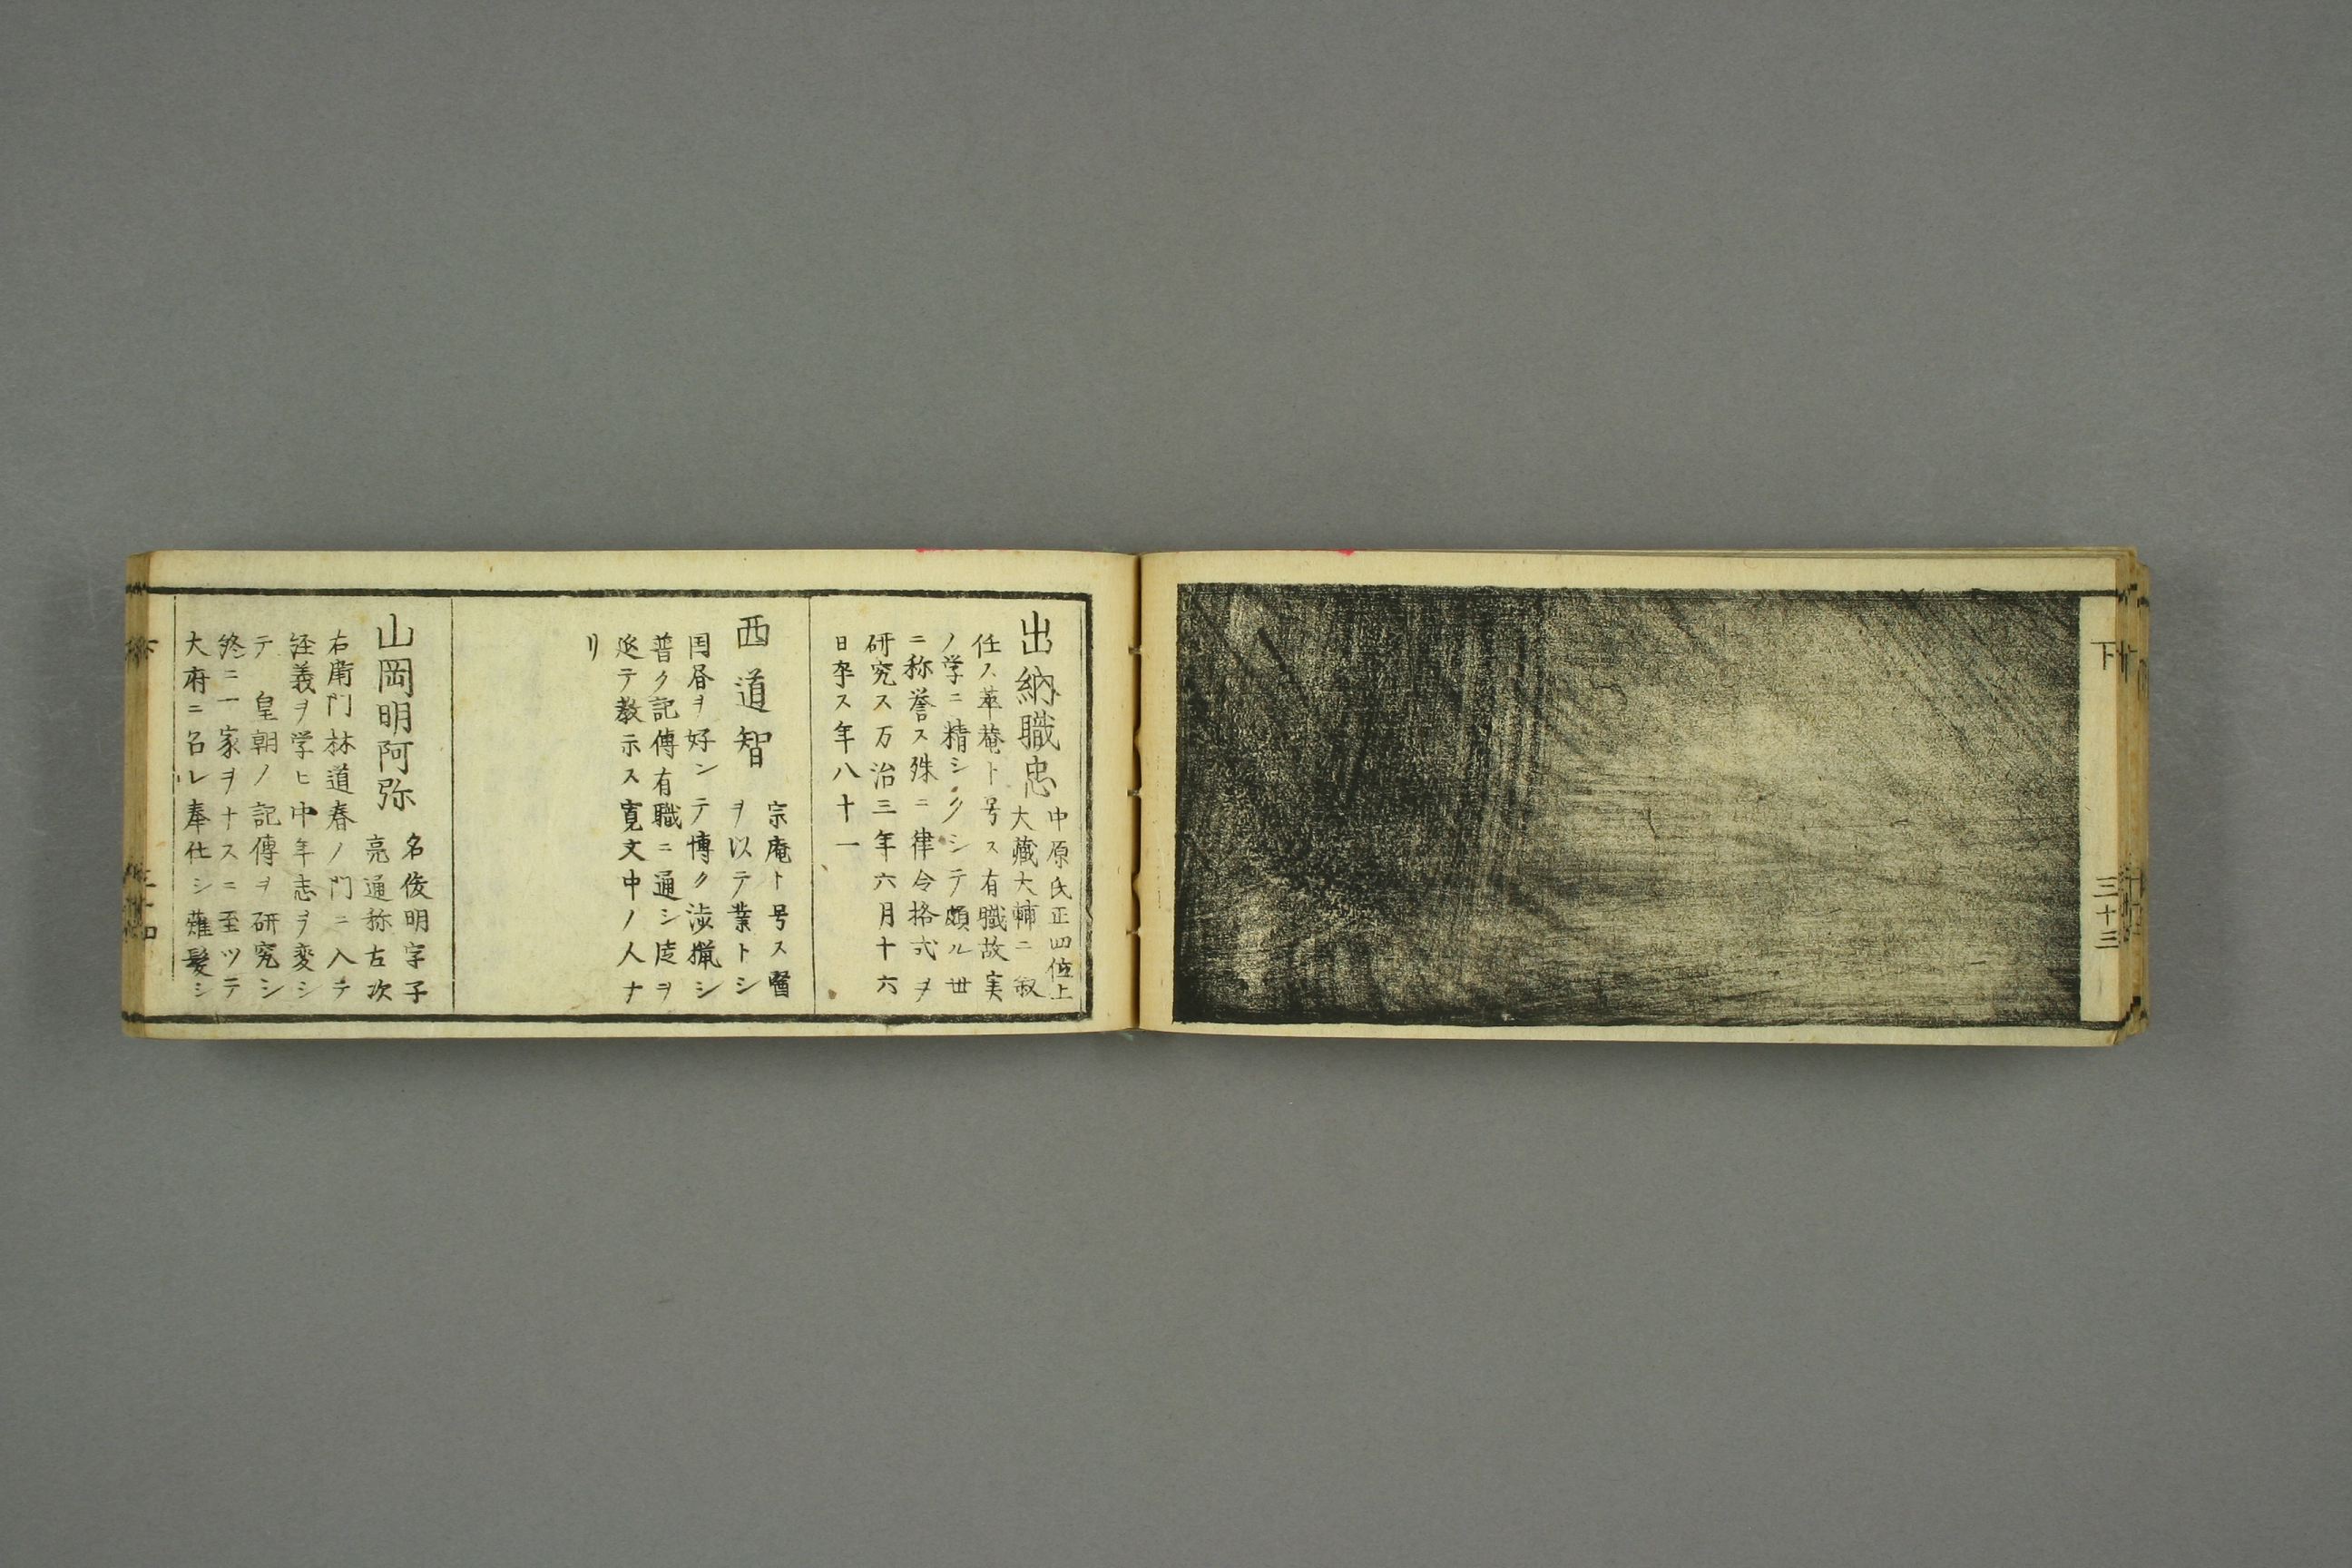 下
三十三
出納職忠
中原氏正四位上
大藏大輔ニ叙
任ス革菴ト号ス有職故実
ノ学ニ精シクシテ頗ル世
ニ称誉ス殊ニ律令格式ヲ
研究ス万治三年六月十六
日卒ス年八十一
西道智
宗庵ト号ス醫
ヲ以テ業トシ
国昏ヲ好ンテ博ク渉猟シ
普ク記傳有職ニ通シ徒ヲ
延テ教示ス寛文中ノ人ナ
リ
山岡明阿弥
名俊明字子
亮通称左次
右衛門林道春ノ門ニ入テ
経義ヲ学ヒ中年志ヲ変シ
テ 皇朝ノ記傳ヲ研究シ
終ニ一家ヲナスニ至ツテ
大府ニ召レ奉仕シ薙髪シ